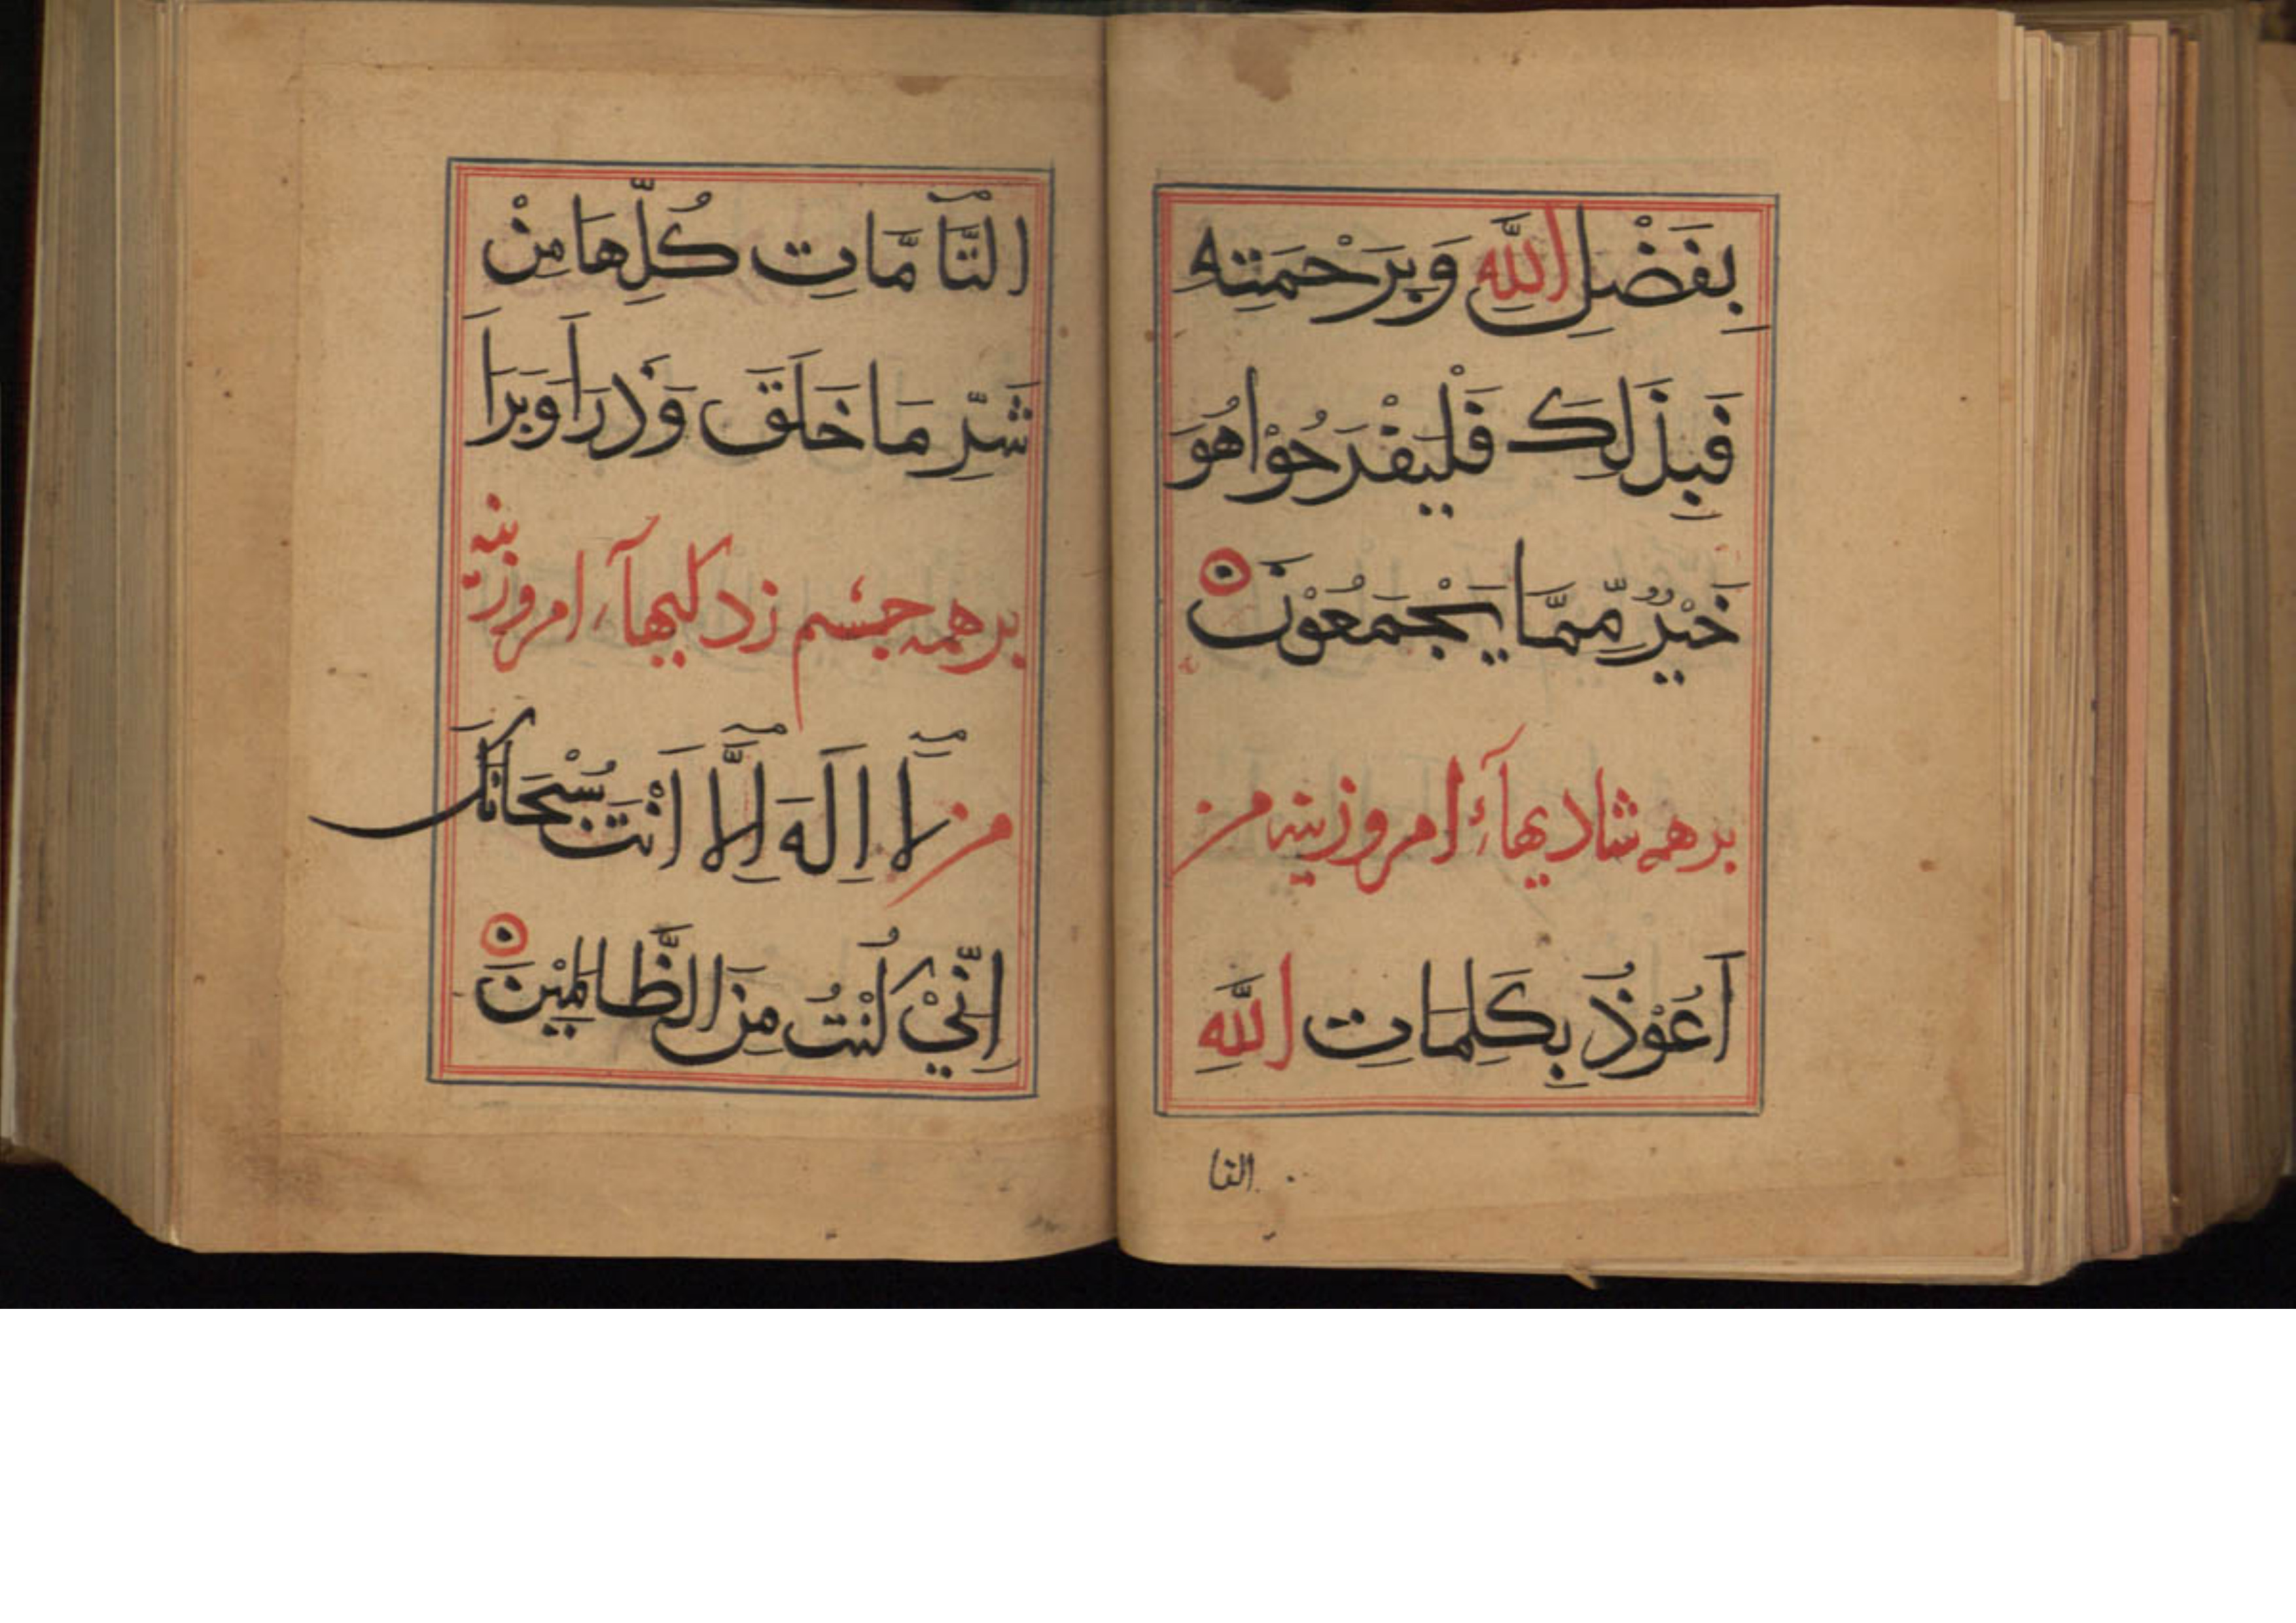 بِفَضْلِ اللَّهِ وَبِرَحْمَتِهِ
فَبِذَلِكَ فَلْيَفْرَحُوْا هُوَ
خَيْرٌ مِّمَّا يَجْمَعُوْنَ
بر همه شادیهآء امروزینه من
اَعُوْذُ بِكَلِمَاتِ اللَّهِ
التا
التَّآمَّاتِ كُلِّهَا مِنْ
شَرِّ مَا خَلَقَ وَذَرَاَ وَبَرَاَ
بر همه چشم زدکیهآء امروزینه
من لَا اِلَهَ اِلَّا اَنْتَ سُبْحَانَكَ
اِنِّيْ كُنْتُ مِنَ الظَّالِمِيْنَ